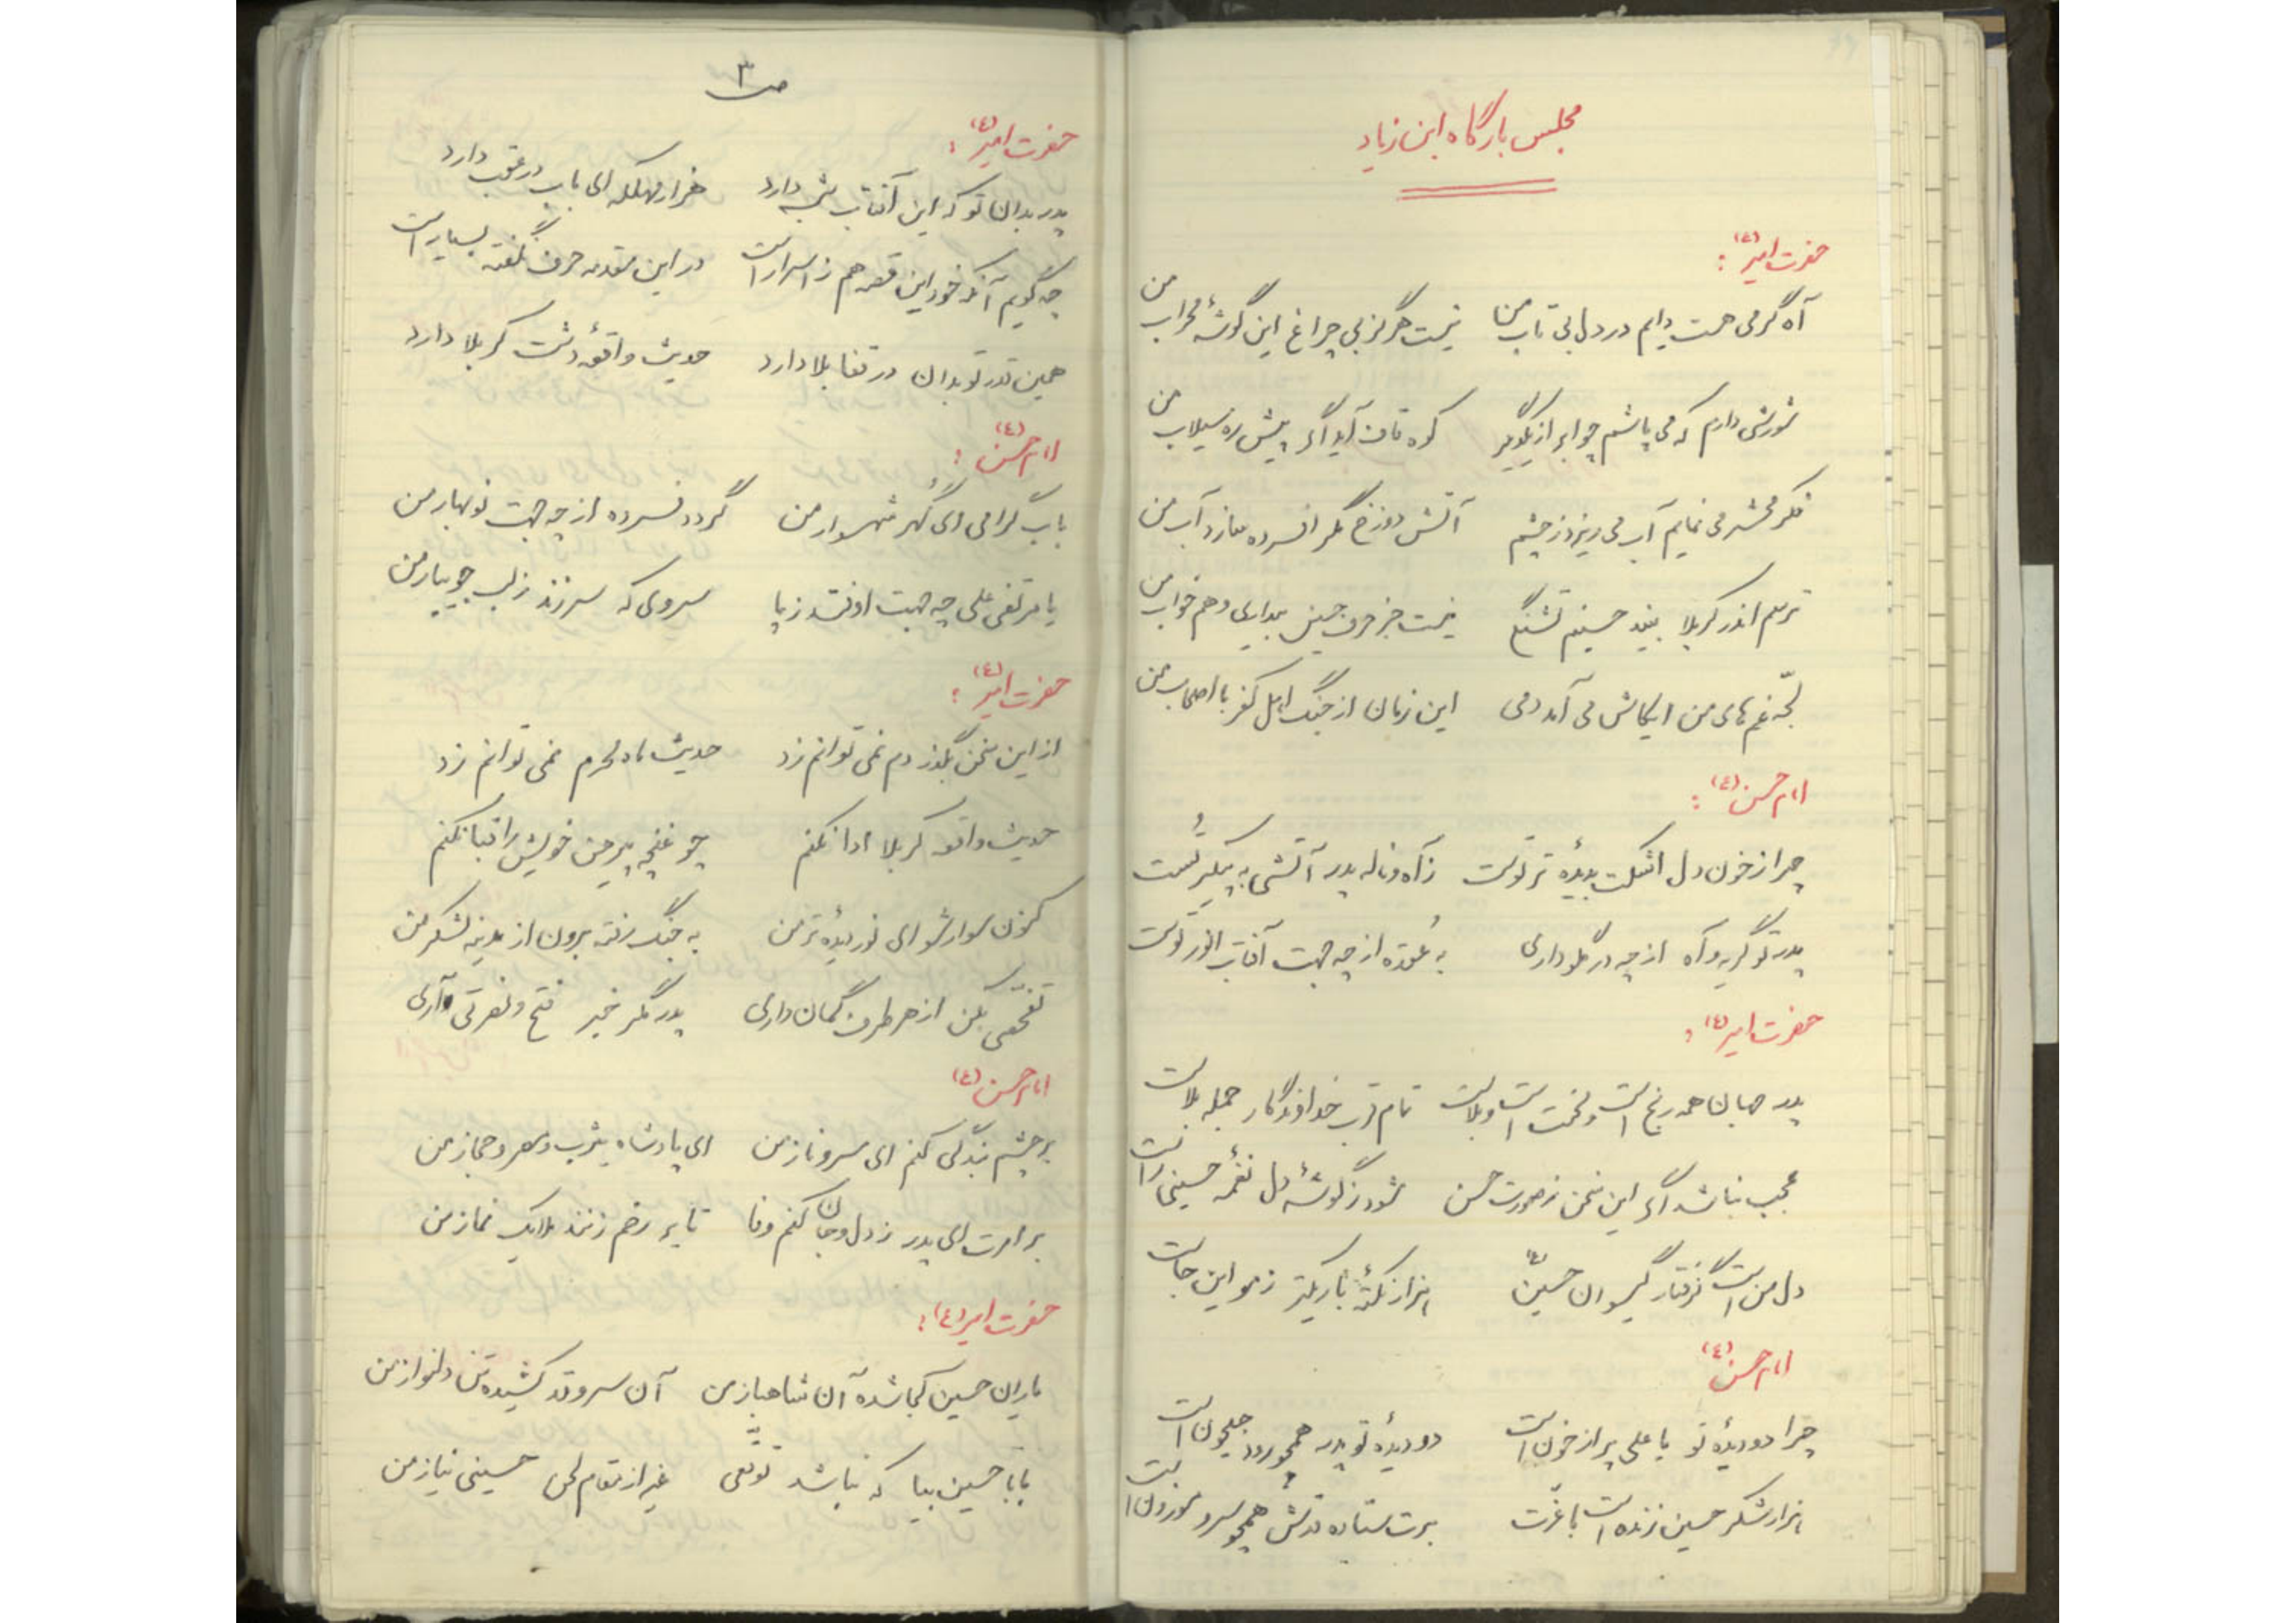 مجلس بارگاه ابن زیاد
حضرت امیر (ع) :
آه گرمی هست دایم در دل بی تاب من نیست هرگز بی چراغ این گوشهٔ محراب من
شورشی دارم که می پاشم چو ابر از یکدیگر کوه قاف آید اگر پیش ره سیلاب من
فکر محشر می نمایم آب می ریزد ز چشم آتش دوزخ مگر افسرده سازد آب من
ترسم اندر کربلا بیند حسینم تشنگی نیست جز حرف حسین بیداری و هم خواب من
لجّه غم های من ایکاش می آمد دمی این زمان از جنگ اهل کفر با اصحاب من
امام حسن (ع) :
چرا ز خون دل اشکت بدیدهٔ تر توست ز آه و ناله پدر آتشی به پیکر تست
پدر تو گریه و آه از چه در گلو داری به عُقده از چه جهت آفتاب انور توست
حضرت امیر (ع) :
پدر جهان همه رنج است و محنت است و بلاست تمام قرب خداوندگار جمله بلاست
عجب نباشد اگر این سخن ز صورت حسن شود ز گوشهٔ دل نغمهٔ حسینی راست
دل من است گرفتار گیسوان حسین (ع) هزار نکتهٔ باریکتر ز مو این جاست
امام حسن (ع)
چرا دو دیدهٔ تو یا علی پر از خون است دو دیدهٔ تو پدر همچو رود جیحون است
هزار شکر حسین زنده است با عزّت برت ستاده قدش همچو سرو موزون است
ص ۳
حضرت امیر (ع) :
پدر بدان تو که این آفتاب شب دارد هزار مهلکه ای باب در عقب دارد
چه گویم آنکه خود این قصه هم ز اسرار است در این مقدمه حرف نگفته بسیار است
همین قدر تو بدان در قفا بلا دارد حدیث واقعهٔ دشت کربلا دارد
امام حسن (ع) :
باب گرامی ای گُهر شهسوار من گردد فسرده از چه جهت نوبهار من
یا مرتضی علی چه جهت اوفتد ز پا سروی که سرزند ز لب جویبار من
حضرت امیر (ع) :
از این سخن بگذر دم نمی توانم زد حدیث ماه محرم نمی توانم زد
حدیث واقعه کربلا ادا نکنم چو غنچه پیرهن خویش را قبا نکنم
کنون سوار شو ای نور دیدهٔ تر من به جنگ رفته برون از مدینه لشکر من
تفحّصی بکن از هر طرف گمان داری پدر مگر خبر فتح و نصرتی آری
امام حسن (ع)
بر چشم بندگی کنم ای سرو ناز من ای پادشاه یثرب و مصر و حجاز من
بر امرت ای پدر ز دل و جان کنم وفا تا بر رخم زنند ملایک نماز من
حضرت امیر (ع) :
یاران حسین کجا شده آن شاهباز من آن سرو قد کشیده تن دلنواز من
بابا حسین بیا که نباشد توقّعی غیر از مقام لحن حسینی نیاز من